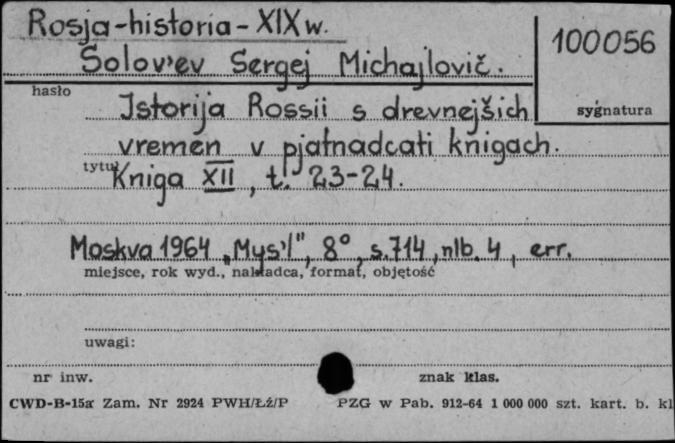 Rosja-historia-XIX w.
100056
Solov'ev Sergej Michajlovič.
hasło
Istorija Rossii s drevnejšich
sygnatura
vremen v pjatnadcati knigach.
tytuł
Kniga XII, t. 23-24.
Moskva 1964 „Mys'l", 8°, s. 714, nlb. 4, err.
miejsce, rok wyd., nakładca, format, objętość
uwagi:
nr inw.
znak klas.
CWD-B-15a Zam. Nr 2924 PWH/Łź/P PZG w Pab. 912-64 1 000 000 szt. kart. b. kl